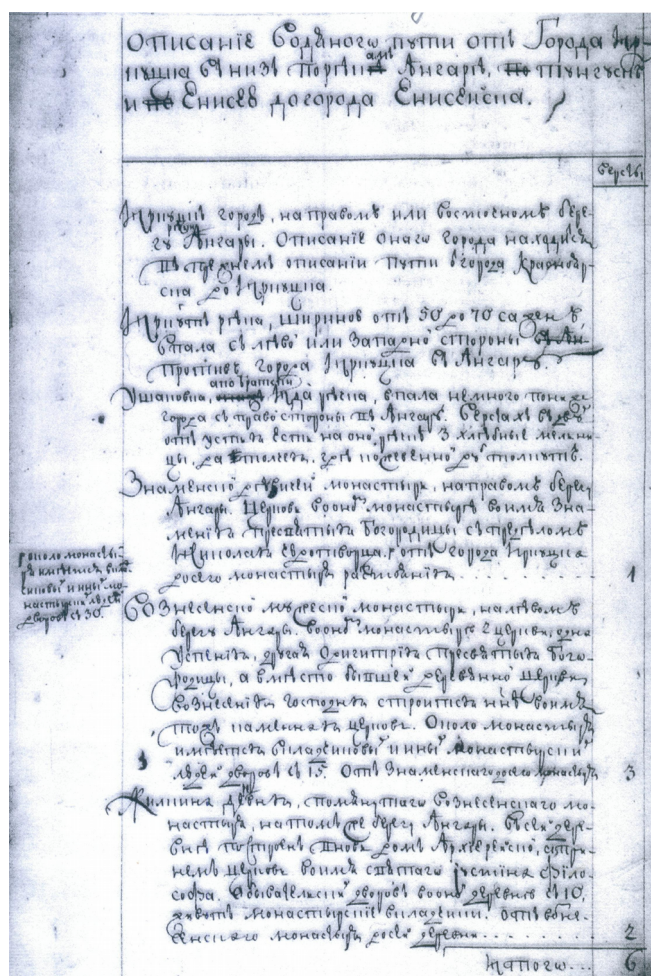 Описанїе водяного пути отъ Города Ир-
куцка внизъ порѣкамъ Ангарѣ, Тунгускѣ
и Енисею догорода Енисейска.
версты
Иркуцкъ городъ, направомъ или восточномъ бере-
гу рѣки Ангары. Описанїе онаго города находится
въ прежнемъ описанїи пути города Краснояр-
ска до Иркуцка.
Иркутъ рѣка, шириною отъ 50 до 70 сажен
впала съ лѣво или Западно стороны
противъ города Иркуцка въ Ангару.
Ушаковка, апо братски Ида рѣчка, впала немного пониже
города съ право стороны въ Ангару. Верстахъ
отъ устья есть на оно рѣчкѣ 3 хлѣбные мельни-
цы, гдѣ толкутъ.
Знаменско дѣвичеи монастырь, направомъ берегу
Ангары. Церковь воно монастырѣ воимя Зна-
менїя пресвятыя Богородицы съ предѣломъ
Николая Чюдотворца. отъ города Иркуцка
досего монастыря разстоянїя . . . . . . . 1
около монасты-
ря имѣются
и ины мо-
настырски людеи
дворовъ съ 30.
Вознесенско мужеско монастырь, налѣвомъ
берегу Ангары. воно монастырѣ 2 церкви, одна
Успенїя, другая Одигитрїя пресвятыя Бого-
родицы, а вмѣсто бывшеи деревянно церкви
Вознесенїя господня строится нне воимя
тоже каменная церковь. Около монастыря
имѣется вкладчиковы и ины монастырски
людеи дворовъ съ 15. Отъ Знаменскаго досего монастыря 3
Жилкина деревня, помянутаго вознесенскаго мо-
настыря, натомже берегу Ангары. Всеи дере-
внѣ построенъ вновь домъ Архиереиско, спри
немъ церковь воимя святаго Іустина Фило-
софа. Обывателски дворовъ воно деревнѣ съ 10,
живутъ монастырские вкладчики. отъ возне-
сенскаго монастыря досеи деревни . . . . . . . . 2
Итого . . . 6